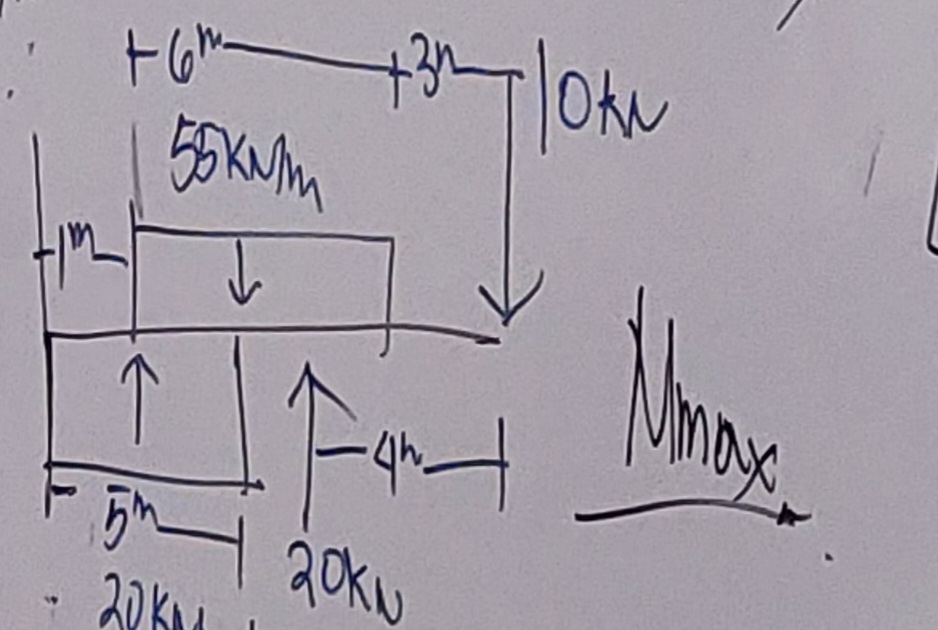 6m 3m 10kN
55kN/m
1m
Mmax
4m
5m
20kN 20kN